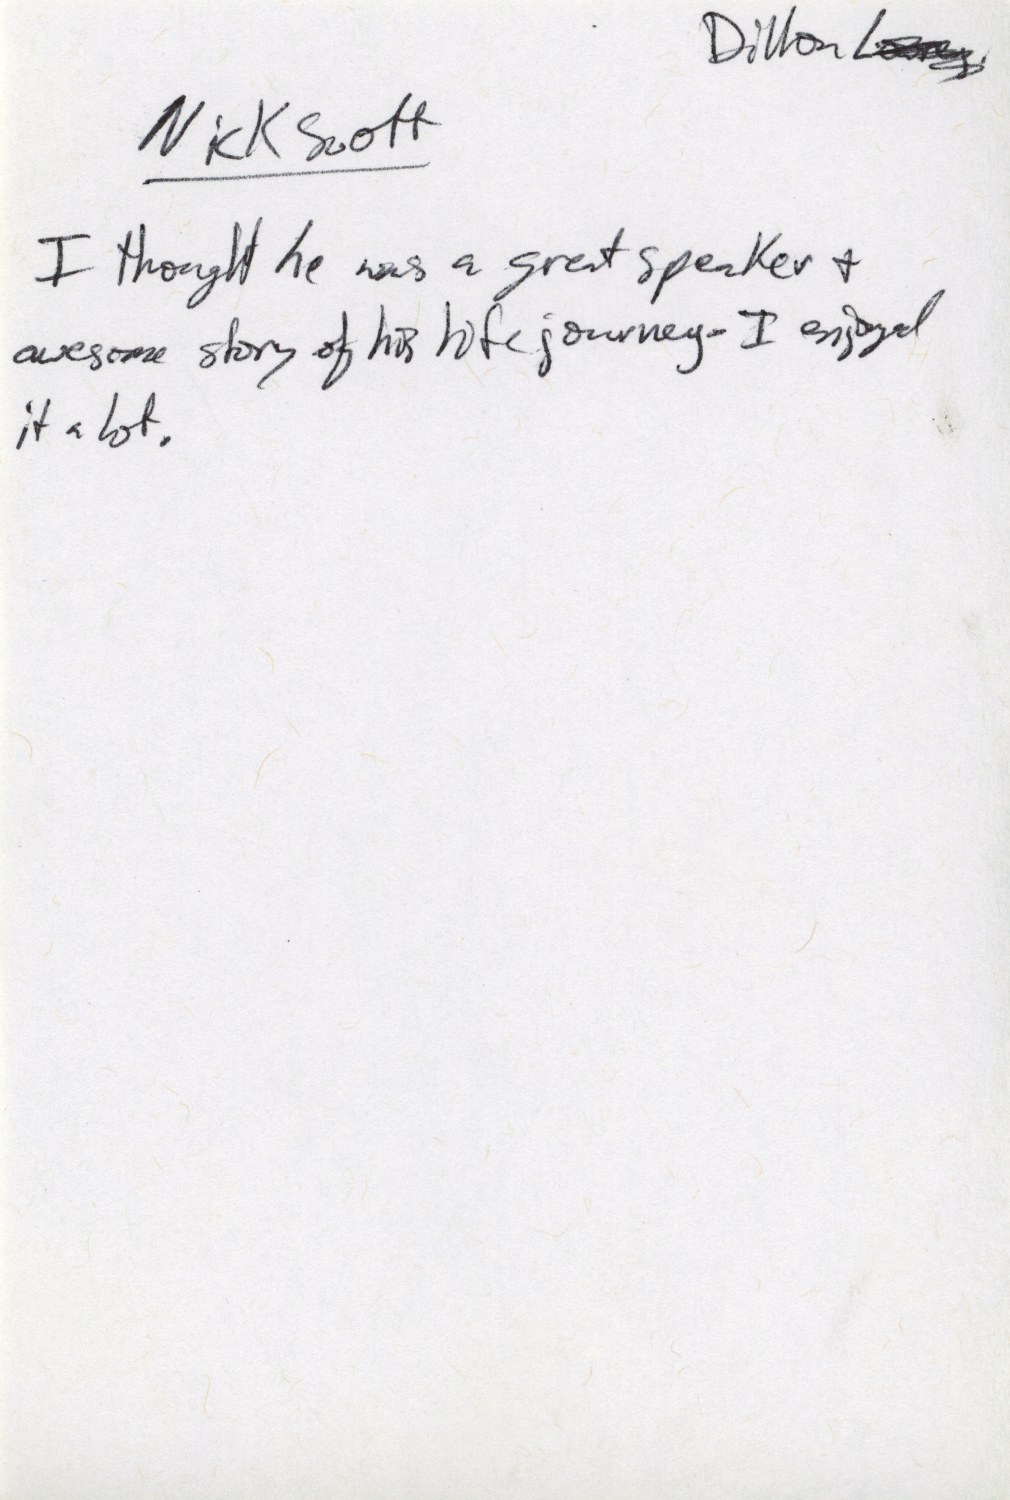 Dillon L
Nick Scott
I thought he was a great speaker +
awesome story of his life journey- I enjoyed
it a lot.